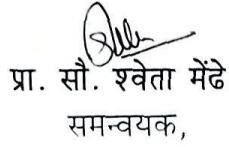 प्रा. सौ. श्वेता मेंढे
समन्वयक,